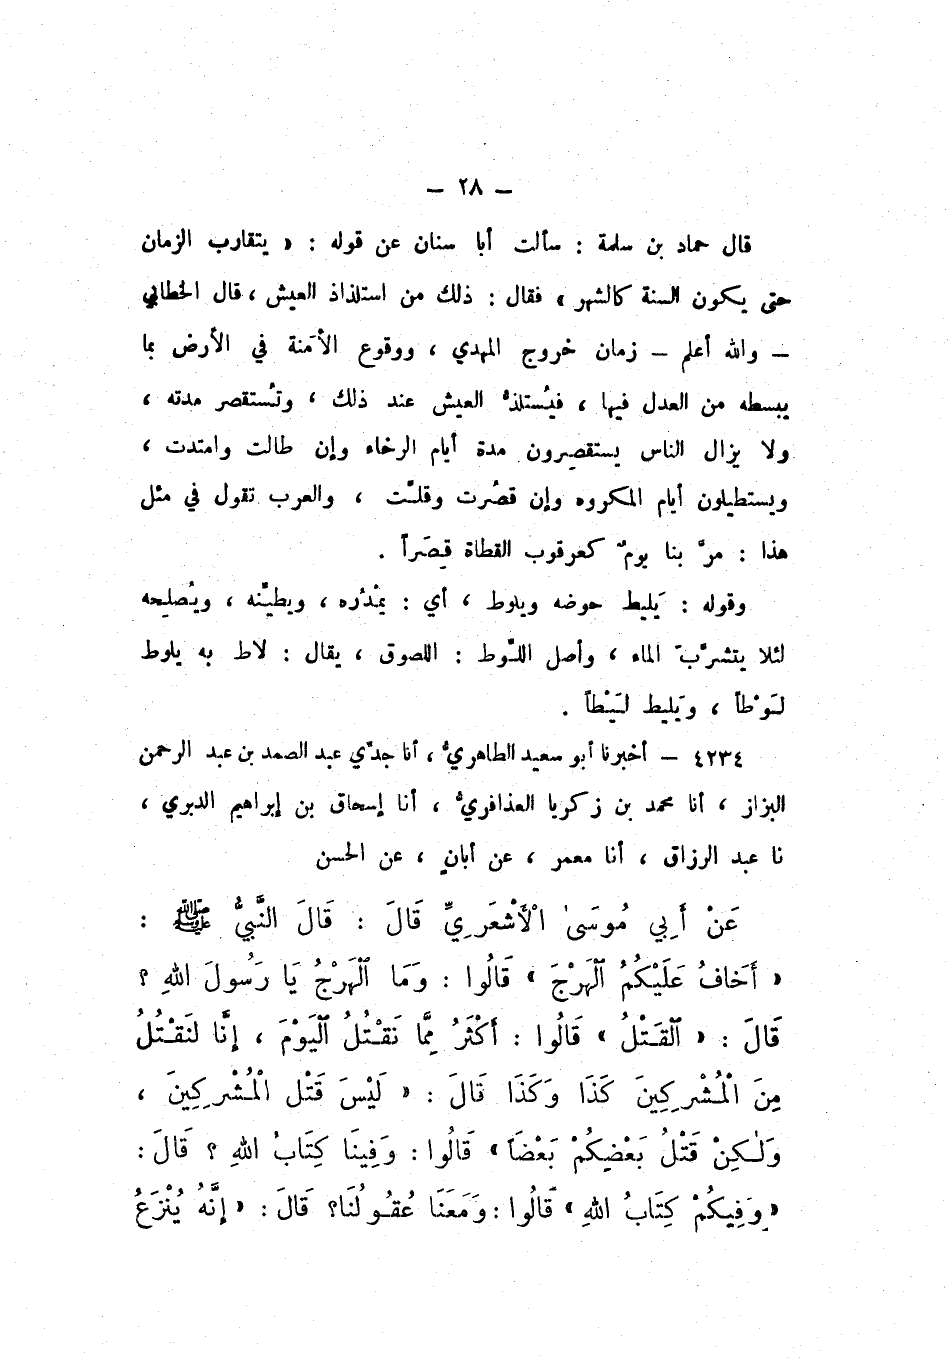 — ٢٨ —
قال حماد بن سلمة : سألت أبا سنان عن قوله : « يتقارب الزمان
حتى يكون السنة كالشهر » فقال : ذلك من استلذاذ العيش ، قال الخطابي
— والله أعلم — زمان خروج المهدي ، ووقوع الأمَنة في الأرض بما
يبسطه من العدل فيها ، فيُستلذُّ العيش عند ذلك ، وتُستقصر مدته ،
ولا يزال الناس يستقصرون مدة أيام الرخاء وإن طالت وامتدت ،
ويستطيلون أيام المكروه وإن قصُرت وقلَّت ، والعرب تقول في مثل
هذا : مرَّ بنا يومٌ كعرقوب القطاة قِصَراً .
وقوله : يَليط حوضه ويلوط ، أي : يمْدُره ، ويطيِّنه ، ويُصلحه
لئلا يتشرَّبَ الماء ، وأصل اللَّوط : اللصوق ، يقال : لاط به يلوط
لَوْطاً ، ويَليط لَيْطاً .
٤٢٣٤ — أخبرنا أبو سعيد الطاهريُّ ، أنا جدِّي عبد الصمد بن عبد الرحمن
البزاز ، أنا محمد بن زكريا العذافريُّ ، أنا إسحاق بن إبراهيم الدبري ،
نا عبد الرزاق ، أنا معمر ، عن أبانٍ ، عن الحسن
عَنْ أَبِي مُوسَىٰ الْأَشْعَرِيِّ قَالَ : قَالَ النَّبِيُّ ﷺ :
« أَخَافُ عَلَيْكُمُ ٱلْهَرْجَ » قَالُوا : وَمَا ٱلْهَرْجُ يَا رَسُولَ اللهِ ؟
قَالَ : « ٱلْقَتْلُ » قَالُوا : أَكْثَرُ مِمَّا نَقْتُلُ ٱلْيَوْمَ ، إِنَّا لَنَقْتُلُ
مِنَ الْمُشْرِكِينَ كَذَا وَكَذَا قَالَ : « لَيْسَ قَتْل الْمُشْرِكِينَ ،
وَلٰكِنْ قَتْلُ بَعْضِكُمْ بَعْضَاً » قَالُوا : وَفِينَا كِتَابُ اللهِ ؟ قَالَ :
« وَفِيكُمْ كِتَابُ اللهِ » قَالُوا : وَمَعَنَا عُقُولُنَا؟ قَالَ : « إِنَّهُ يُنْزَعُ